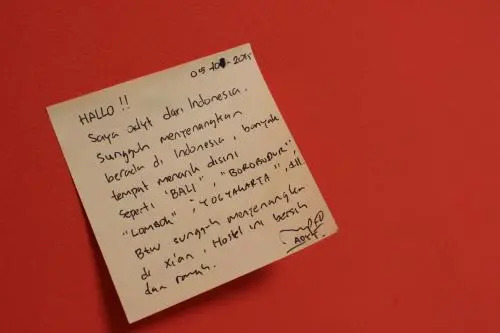 05-10-2015
HALLO !!
Saya adyt dari Indonesia.
Sungguh menyenangkan
berada di Indonesia, banyak
tempat menarik disini
seperti "BALI", "BOROBUDUR",
"LOMBOK", "YOGYAKARTA", dll
Btw sungguh menyenangkan
di xian, Hostel ini bersih
dan ramah.
ADYT